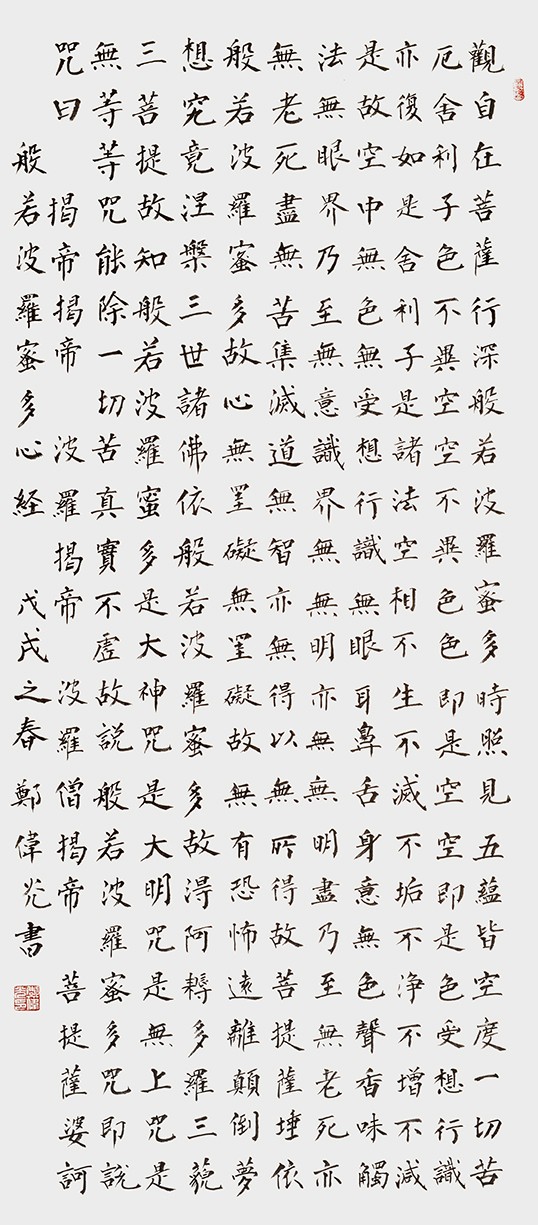 觀自在菩薩行深般若波羅蜜多時照見五蘊皆空度一切苦
厄舍利子色不異空空不異色色即是空空即是色受想行識
亦復如是舍利子是諸法空相不生不滅不垢不淨不增不減
是故空中無色無受想行識無眼耳鼻舌身意無色聲香味觸
法無眼界乃至無意識界無無明亦無無明盡乃至無老死亦
無老死盡無苦集滅道無智亦無得以無所得故菩提薩埵依
般若波羅蜜多故心無罣礙無罣礙故無有恐怖遠離顛倒夢
想究竟涅槃三世諸佛依般若波羅蜜多故得阿耨多羅三藐
三菩提故知般若波羅蜜多是大神咒是大明咒是無上咒是
無等等咒能除一切苦真實不虛故說般若波羅蜜多咒即說
咒曰 揭帝揭帝 波羅揭帝 波羅僧揭帝 菩提薩婆訶
般若波羅蜜多心経 戊戌之春 鄭偉光書